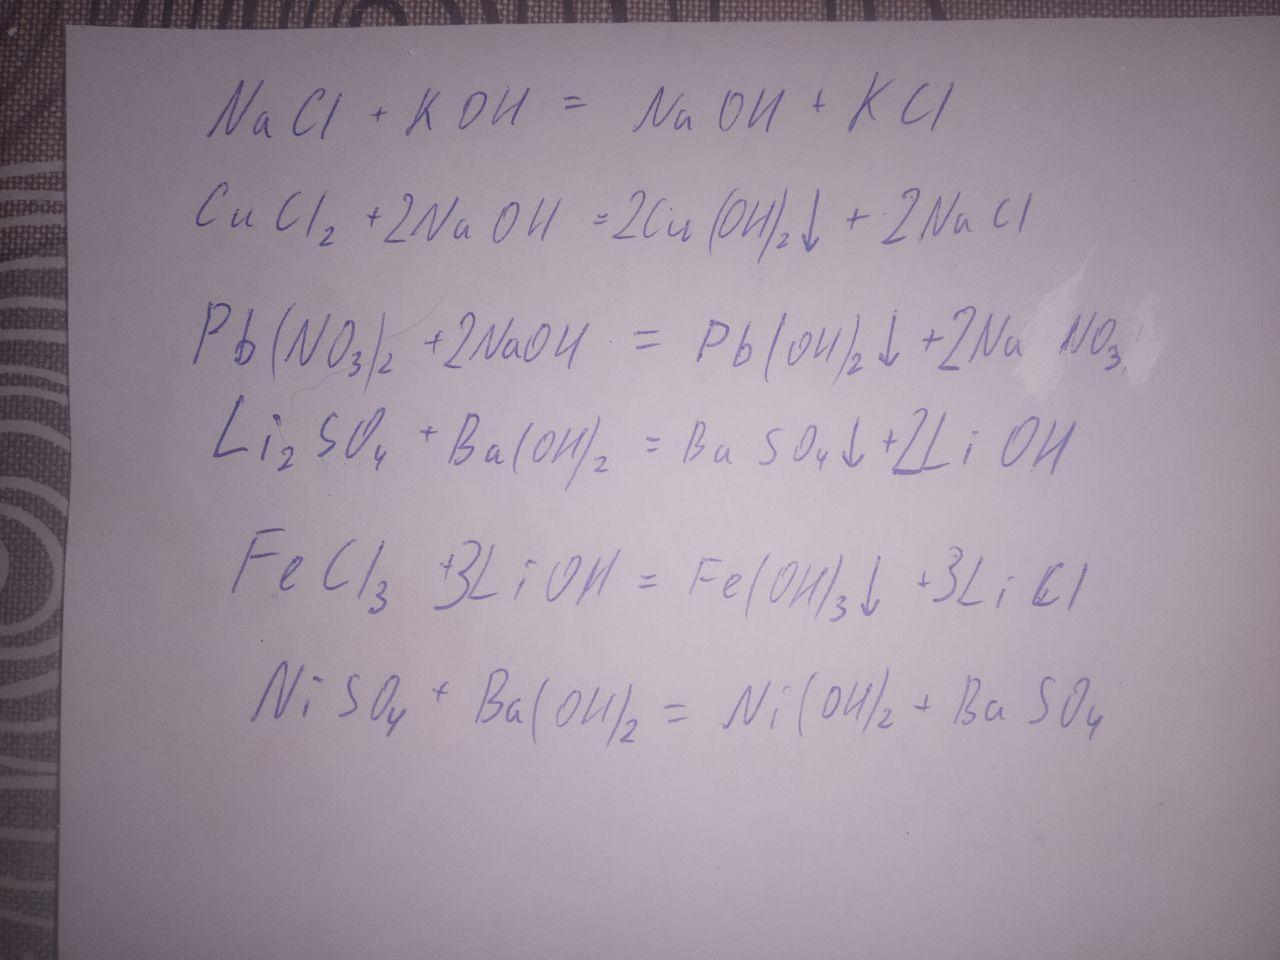 NaCl + KOH = NaOH + KCl
CuCl₂ + 2NaOH = 2Cu(OH)₂↓ + 2NaCl
Pb(NO₃)₂ + 2NaOH = Pb(OH)₂↓ + 2NaNO₃
Li₂SO₄ + Ba(OH)₂ = BaSO₄↓ + 2LiOH
FeCl₃ + 3LiOH = Fe(OH)₃↓ + 3LiCl
NiSO₄ + Ba(OH)₂ = Ni(OH)₂ + BaSO₄